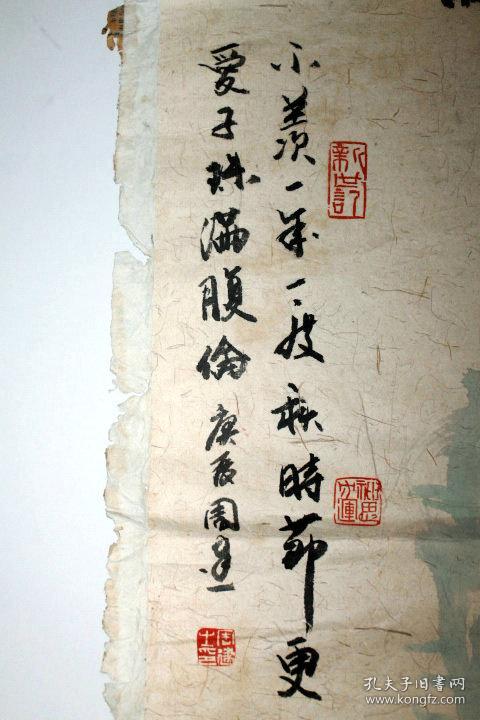 不羨一年一度秋時節更
愛子珠滿腹倫 庚辰周
孔夫子旧书网
www.kongfz.com